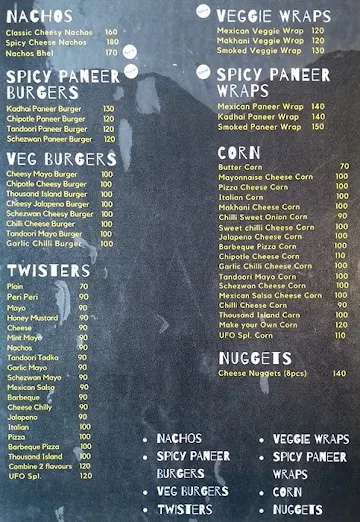 NACHOS
Classic Cheesy Nachos 160
Spicy Cheese Nachos 180
Nachos Bhel 170
SPICY PANEER
BURGERS
Kadhai Paneer Burger 130
Chipotle Paneer Burger 120
Tandoori Paneer Burger 120
Schezwan Paneer Burger 120
VEG BURGERS
Cheesy Mayo Burger 100
Chipotle Cheesy Burger 100
Thousand Island Burger 100
Cheesy Jalapeno Burger 100
Schezwan Cheesy Burger 100
Chilli Cheese Burger 100
Tandoori Mayo Burger 100
Garlic Chilli Burger 100
TWISTERS
Plain 70
Peri Peri 90
Mayo 90
Honey Mustard 90
Cheese 90
Mint Mayo 90
Nachos 90
Tandoori Tadka 90
Garlic Mayo 90
Schezwan Mayo 90
Mexican Salsa 90
Barbeque 90
Cheese Chilly 90
Jalapeno 90
Italian 100
Pizza 100
Barbeque Pizza 100
Thousand Island 100
Combine 2 flavours 120
UFO Spl. 120
VEGGIE WRAPS
Mexican Veggie Wrap 120
Makhani Veggie Wrap 120
Smoked Veggie Wrap 130
SPICY PANEER
WRAPS
Mexican Paneer Wrap 140
Kadhai Paneer Wrap 140
Smoked Paneer Wrap 150
CORN
Butter Corn 70
Mayonnaise Cheese Corn 100
Pizza Cheese Corn 100
Italian Corn 100
Makhani Cheese Corn 100
Chilli Sweet Onion Corn 90
Sweet chilli Cheese Corn 100
Jalapeno Cheese Corn 100
Barbeque Pizza Corn 100
Chipotle Cheese Corn 110
Garlic Chilli Cheese Corn 100
Tandoori Mayo Corn 100
Schezwan Cheese Corn 100
Mexican Salsa Cheese Corn 100
Chilli Cheese Corn 90
Thousand Island Corn 100
Make your Own Corn 120
UFO Spl. Corn 110
NUGGETS
Cheese Nuggets (8pcs) 140
• NACHOS
• SPICY PANEER
BURGERS
• VEG BURGERS
• TWISTERS
• VEGGIE WRAPS
• SPICY PANEER
WRAPS
• CORN
• NUGGETS